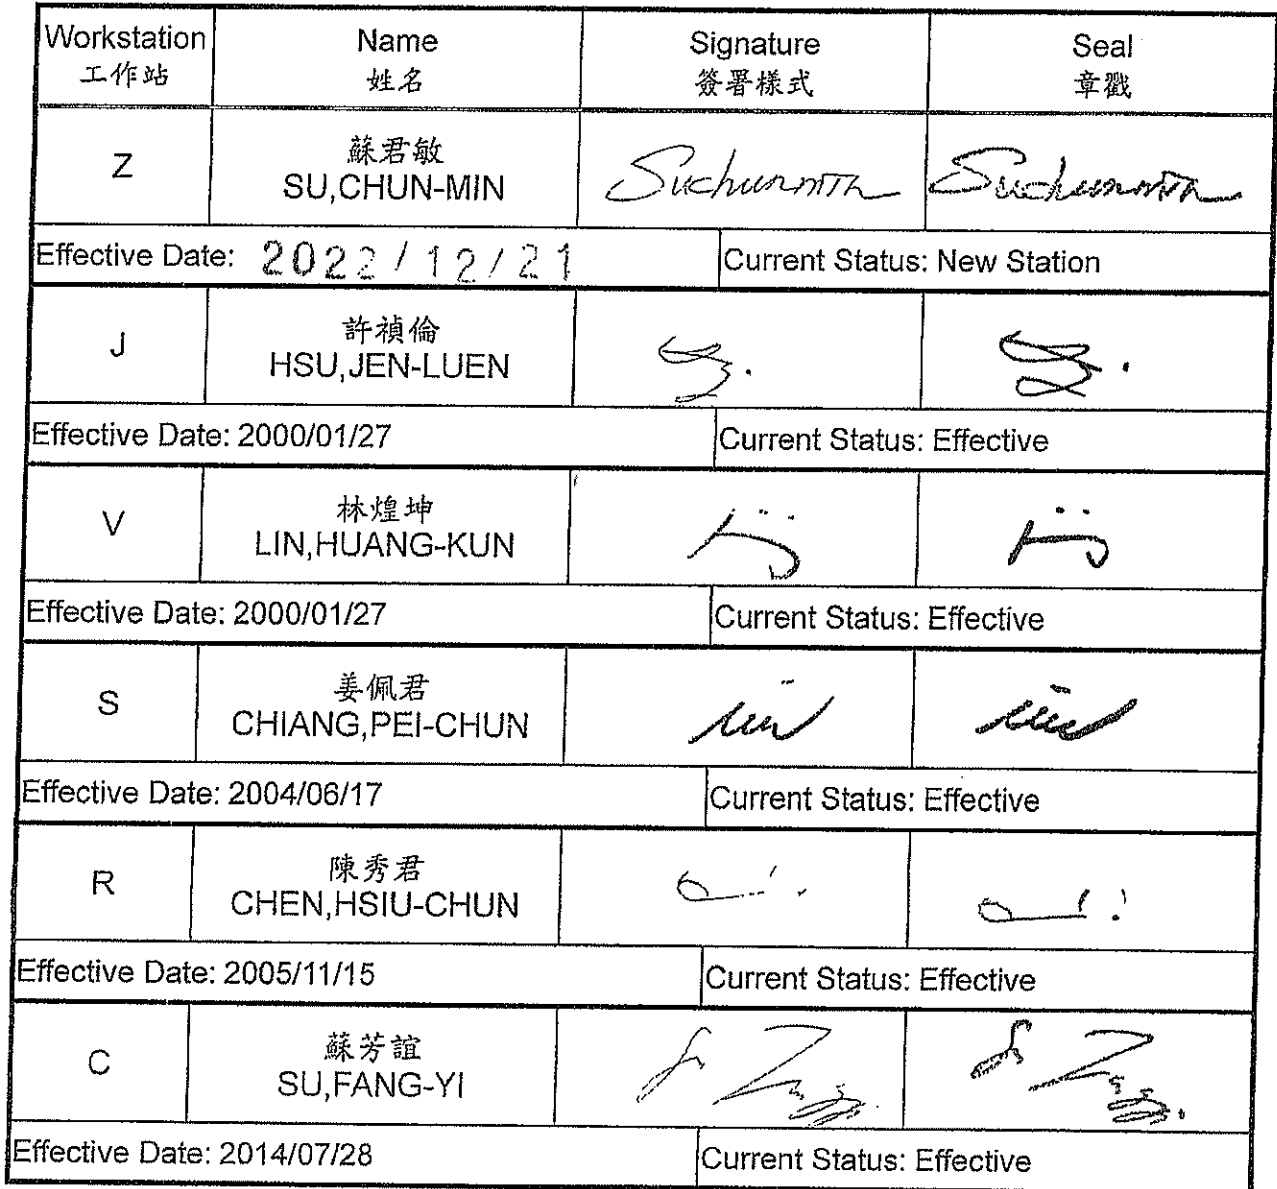 Workstation Name Signature Seal
工作站 姓名 簽署樣式 章戳
Z
蘇君敏
SU,CHUN-MIN
Suchunmin Suchunmin
Effective Date: 2022/12/21 Current Status: New Station
J
許禎倫
HSU,JEN-LUEN
Effective Date: 2000/01/27 Current Status: Effective
V
林煌坤
LIN,HUANG-KUN
Effective Date: 2000/01/27 Current Status: Effective
S
姜佩君
CHIANG,PEI-CHUN
Effective Date: 2004/06/17 Current Status: Effective
R
陳秀君
CHEN,HSIU-CHUN
Effective Date: 2005/11/15 Current Status: Effective
C
蘇芳誼
SU,FANG-YI
Effective Date: 2014/07/28 Current Status: Effective